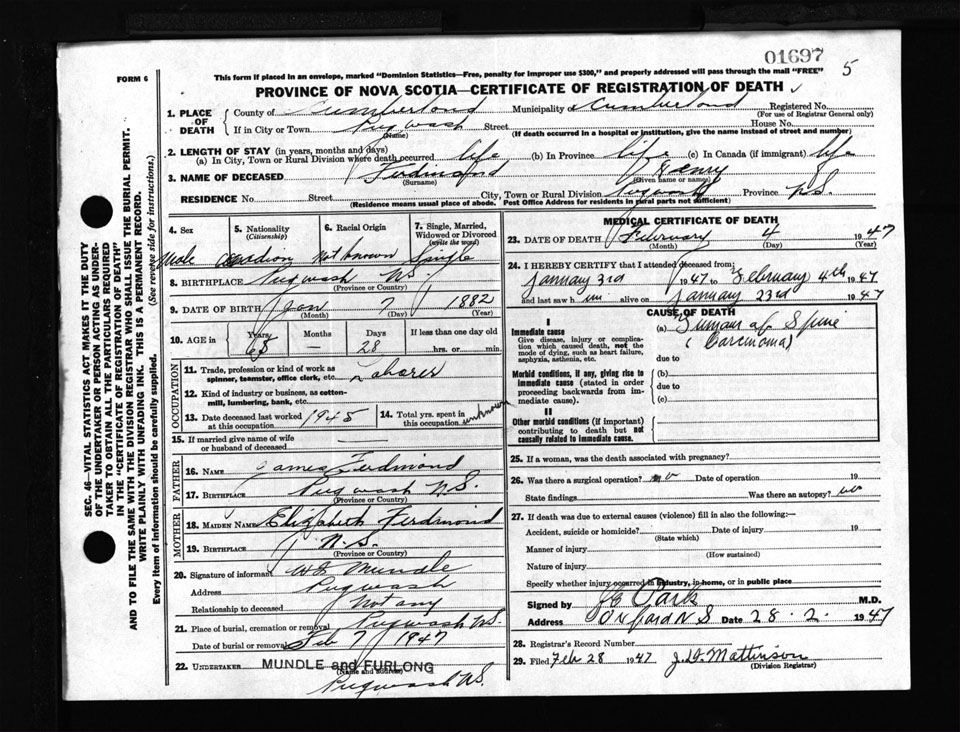 01697
5
FORM 6
This form if placed in an envelope, marked "Dominion Statistics—Free, penalty for improper use $300," and properly addressed will pass through the mail "FREE"
PROVINCE OF NOVA SCOTIA—CERTIFICATE OF REGISTRATION OF DEATH
1. PLACE OF DEATH
County of Cumberland Municipality of Cumberland Registered No.
(For use of Registrar General only)
If in City or Town Pugwash Street House No.
(Name) (If death occurred in a hospital or institution, give the name instead of street and number)
2. LENGTH OF STAY (in years, months and days)
(a) In City, Town or Rural Division where death occurred life (b) In Province life (c) In Canada (if immigrant) life
3. NAME OF DECEASED Ferdinand Henry
(Surname) (Given name or names)
RESIDENCE No. Street City, Town or Rural Division Pugwash Province N.S.
(Residence means usual place of abode. Post Office Address for residents in rural parts not sufficient)
4. Sex
Male
5. Nationality
(Citizenship)
Canadian
6. Racial Origin
Not known
7. Single, Married, Widowed or Divorced
(write the word)
Single
8. BIRTHPLACE Pugwash N.S.
(Province or Country)
9. DATE OF BIRTH Jan 7 1882
(Month) (Day) (Year)
10. AGE in
Years 65
Months —
Days 28
If less than one day old
hrs. or min.
OCCUPATION
11. Trade, profession or kind of work as spinner, teamster, office clerk, etc. Laborer
12. Kind of industry or business, as cotten-mill, lumbering, bank, etc.
13. Date deceased last worked at this occupation 1945
14. Total yrs. spent in this occupation unknown
15. If married give name of wife or husband of deceased —
FATHER
16. NAME James Ferdinand
17. BIRTHPLACE Pugwash N.S.
(Province or Country)
MOTHER
18. MAIDEN NAME Elizabeth Ferdinand
19. BIRTHPLACE N.S.
(Province or Country)
20. Signature of informant Mundle
Address Pugwash
Relationship to deceased Not any
21. Place of burial, cremation or removal Pugwash N.S.
Date of burial or removal Feb 7 1947
22. UNDERTAKER MUNDLE and FURLONG
(Name and address)
Pugwash N.S.
MEDICAL CERTIFICATE OF DEATH
23. DATE OF DEATH February 4 1947
(Month) (Day) (Year)
24. I HEREBY CERTIFY that I attended deceased from:
January 3rd 1947 to February 4th 1947
and last saw him alive on January 23rd 1947
CAUSE OF DEATH
I
Immediate cause
Give disease, injury or complication which caused death, not the mode of dying, such as heart failure, asphyxia, asthenia, etc.
(a) Tumour of Spine
(Carcinoma)
due to
Morbid conditions, if any, giving rise to immediate cause (stated in order proceeding backwards from immediate cause).
(b)
due to
(c)
II
Other morbid conditions (if important) contributing to death but not causally related to immediate cause.
25. If a woman, was the death associated with pregnancy?
26. Was there a surgical operation? no Date of operation 19
State findings Was there an autopsy? no
27. If death was due to external causes (violence) fill in also the following:—
Accident, suicide or homicide? Date of injury 19
(State which)
Manner of injury
(How sustained)
Nature of injury
Specify whether injury occurred in industry, in home, or in public place
Signed by Park M.D.
Address Oxford N S Date 28. 2. 1947
28. Registrar's Record Number
29. Filed Feb 28 1947 Mattinson
(Division Registrar)
SEC. 46—VITAL STATISTICS ACT MAKES IT THE DUTY
OF THE UNDERTAKER OR PERSON ACTING AS UNDER-
TAKER TO OBTAIN ALL THE PARTICULARS REQUIRED
IN THE "CERTIFICATE OF REGISTRATION OF DEATH"
AND TO FILE THE SAME WITH THE DIVISION REGISTRAR WHO SHALL ISSUE THE BURIAL PERMIT.
WRITE PLAINLY WITH UNFADING INK. THIS IS A PERMANENT RECORD.
Every item of information should be carefully supplied. (See reverse side for instructions.)